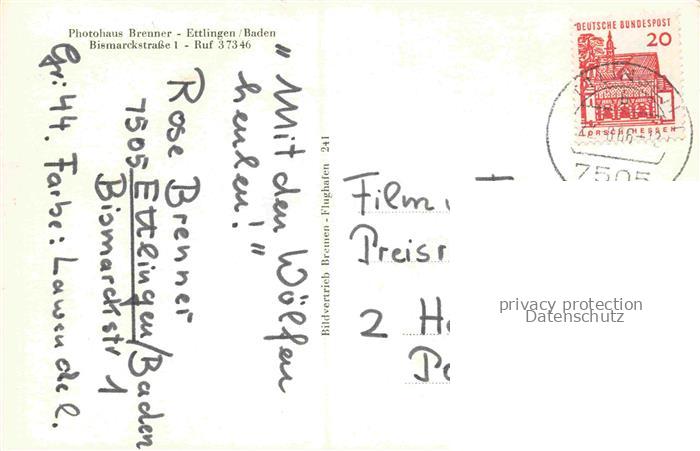 Photohaus Brenner - Ettlingen/Baden
Bismarckstraße 1 - Ruf 37346
"Mit den Wölfen
heulen!"
Rose Brenner
7505 Ettlingen/Baden
Bismarckstr 1
Gr: 44. Farbe: Lawendel.
Bildvertrieb Bremen - Flughafen 241
DEUTSCHE BUNDESPOST
20
LORSCH/HESSEN
7505
Film
2
privacy protection
Datenschutz